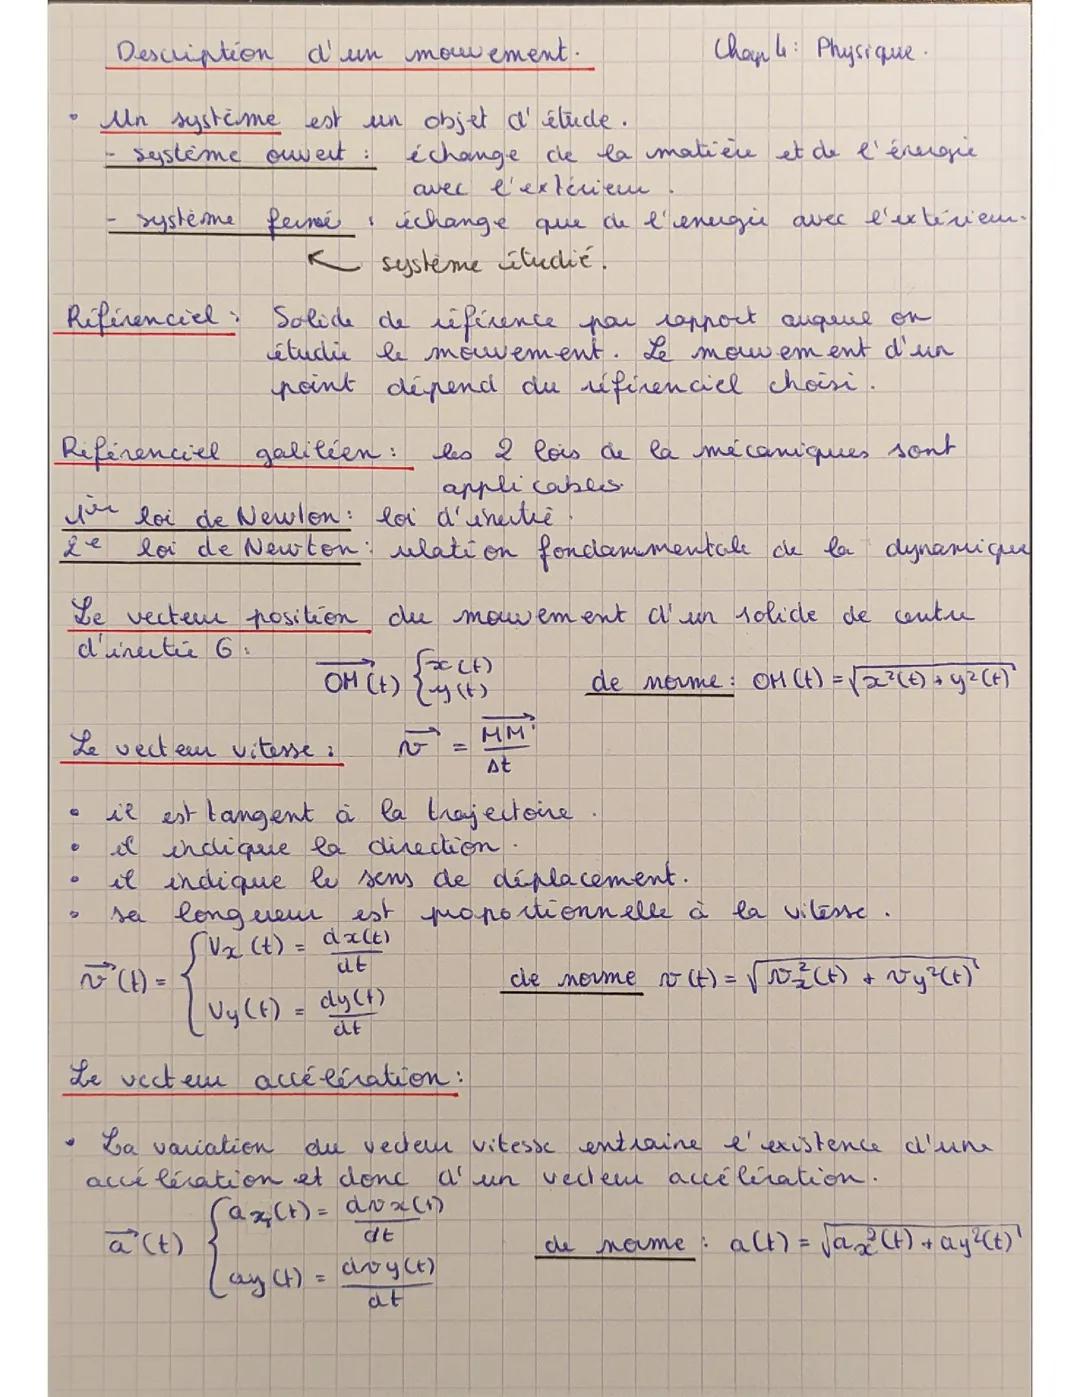 Description d'un mouvement. Chap 4: Physique.
• Un système est un objet d'étude.
- système ouvert : échange de la matière et de l'énergie
avec l'extérieur.
- système fermé : échange que de l'énergie avec l'extérieur.
↖ système étudié.
Référenciel : Solide de référence par rapport auquel on
étudie le mouvement. Le mouvement d'un
point dépend du référenciel choisi.
Référenciel galiléen : les 2 lois de la mécaniques sont
applicables
1ère loi de Newton : loi d'inertie.
2e loi de Newton : relation fondammentale de la dynamique
Le vecteur position du mouvement d'un solide de centre
d'inertie G :
OM→(t) { x(t)
y(t) de norme : OM(t) = √x²(t) + y²(t)
Le vecteur vitesse : v→ = MM'→ / Δt
• il est tangent à la trajectoire.
• il indique la direction.
• il indique le sens de déplacement.
• sa longueur est proportionnelle à la vitesse.
v→(t) = { Vx(t) = dx(t)/dt
Vy(t) = dy(t)/dt de norme v(t) = √vx²(t) + vy²(t)
Le vecteur accélération :
• La variation du vecteur vitesse entraine l'existence d'une
accélération et donc d'un vecteur accélération.
a→(t) { ax(t) = dvx(t)/dt
ay(t) = dvy(t)/dt de norme : a(t) = √ax²(t) + ay²(t)